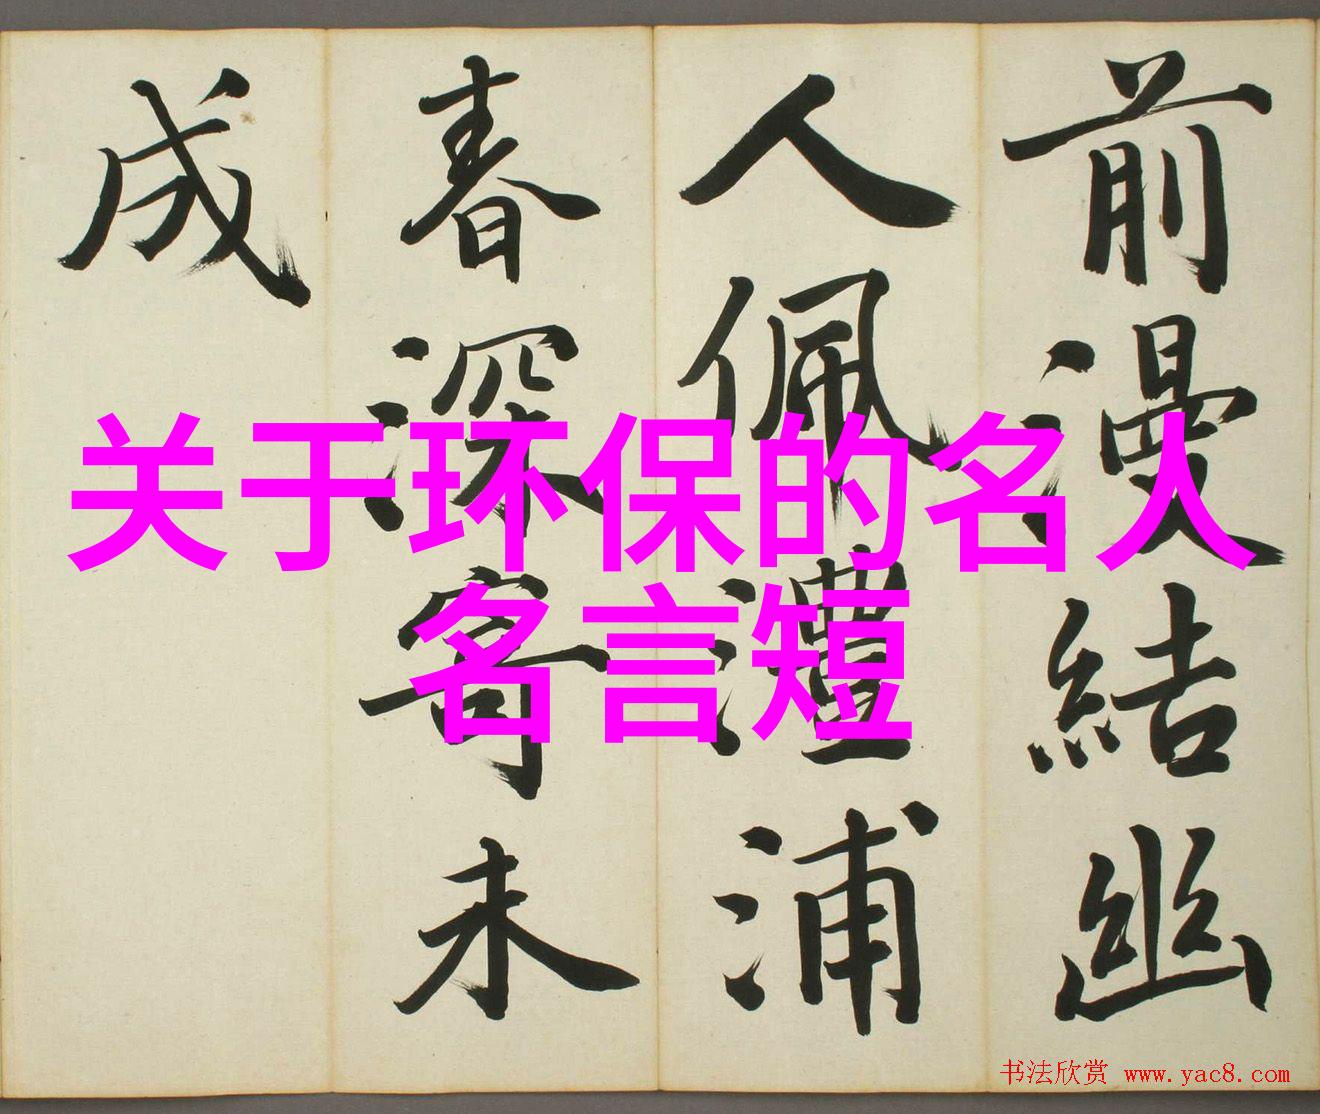 前漫結幽
人佩澧浦
春深寄未
成
关于环保的名人
名言短
书法欣赏 www.yac8.com